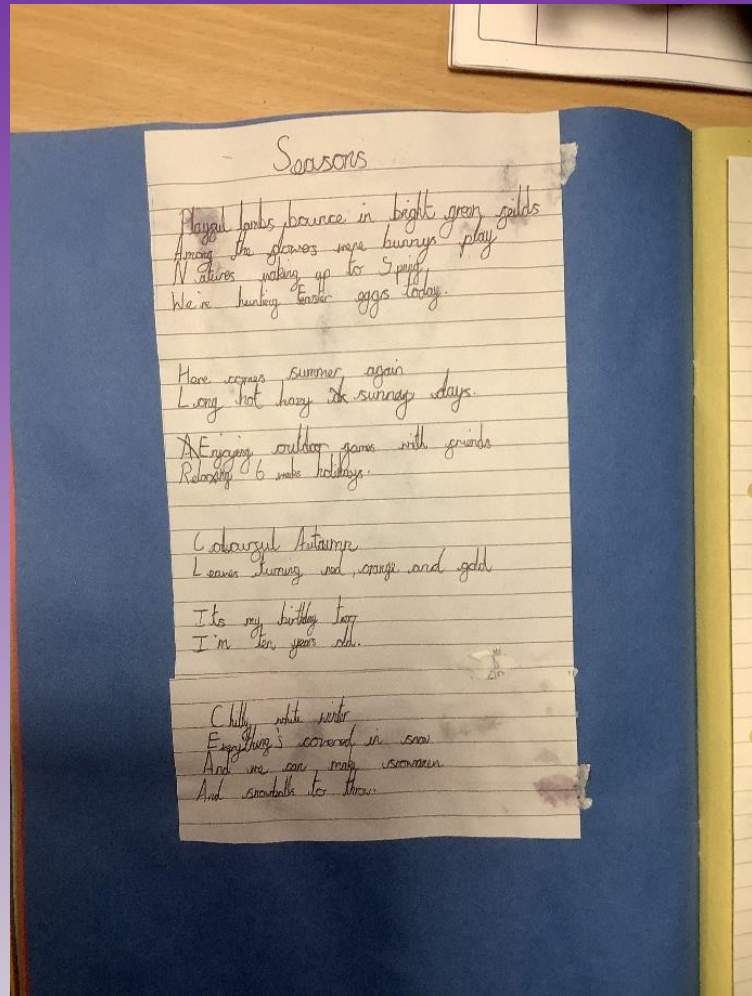 Seasons
Playful lambs bounce in bright green feilds
Among the flowers were bunnys play
Natures waking up to Spring
We're hunting Easter eggs today.
Here comes summer again
Long hot hazy sunney days.
Enjoying outdoor games with friends
Relaxing 6 weeks holidays.
Colourful Autumn
Leaves turning red, orange and gold
Its my birthday too
I'm ten years old.
Chilly white winter
Everything's covered in snow
And we can make snowmen
And snowballs to throw.